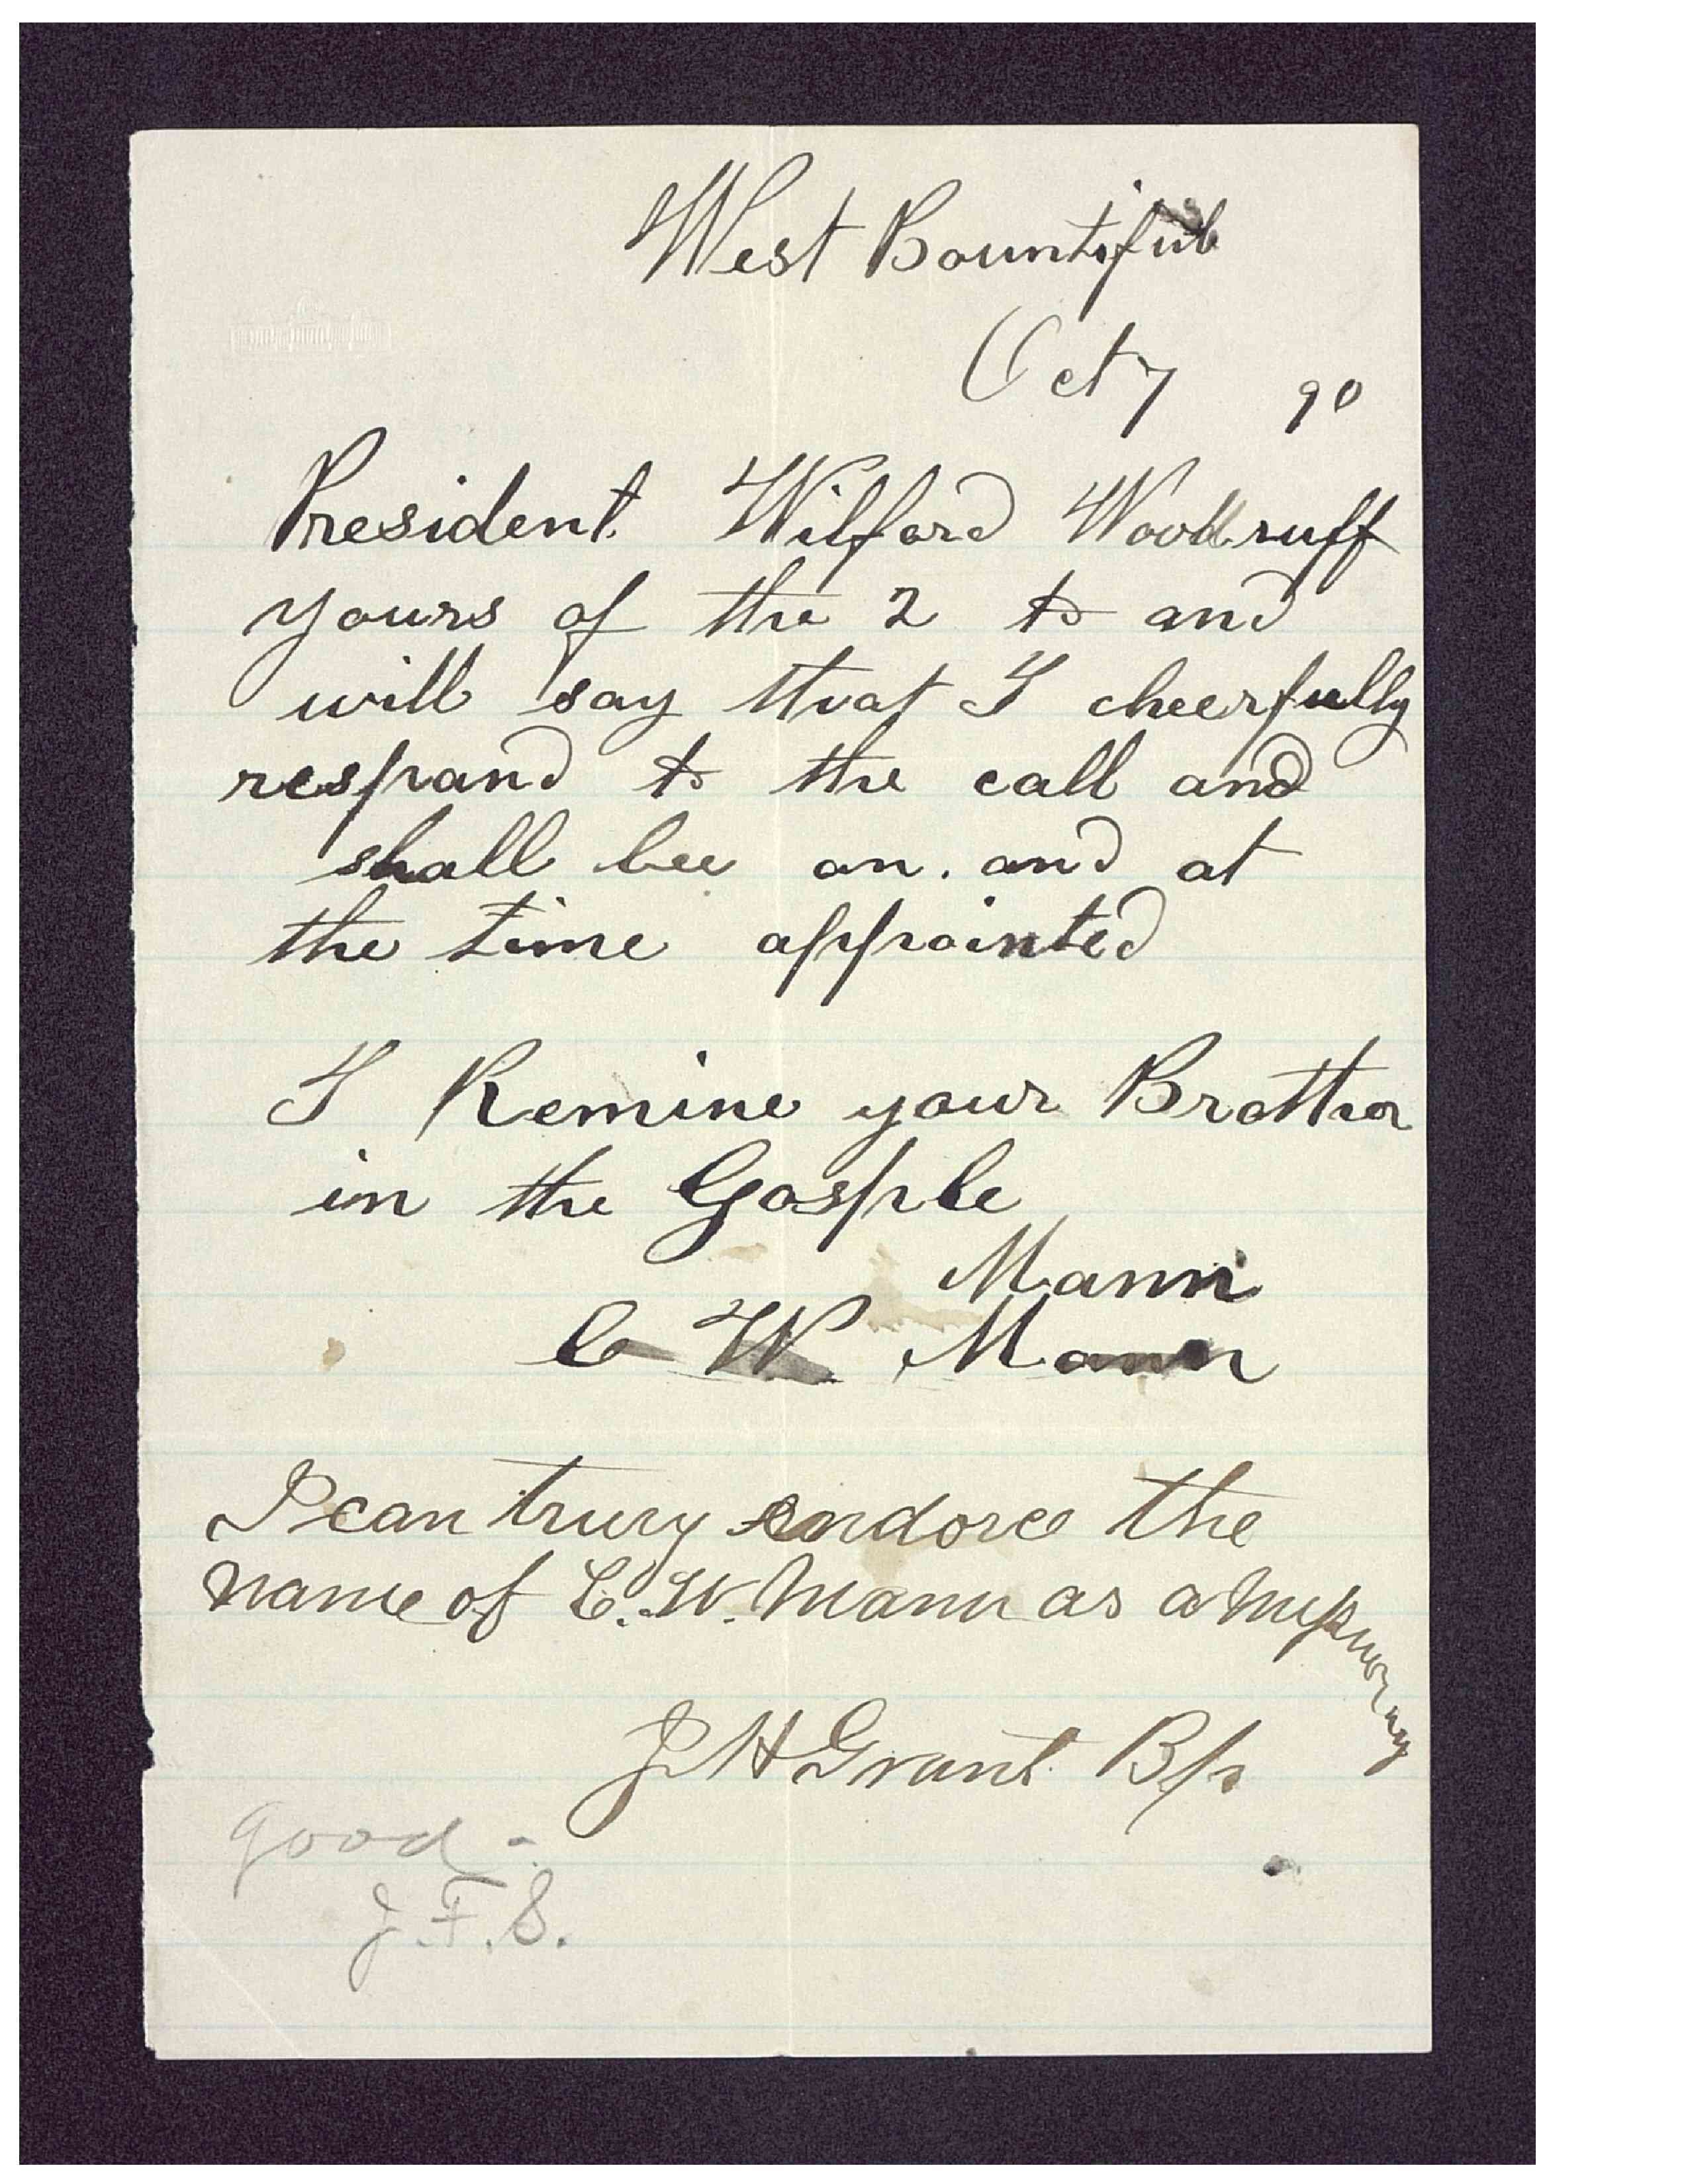 West Bountiful
Oct 7 90
President Wilford Woodruff
yours of the 2 to and
will say that I cheerfully
respond to the call and
shall bee on. and at
the time appointed
I Remine your Brother
in the Gosple
Mann
C W Mann
I can trury endorce the
name of C. W. Mann as a Missionary
J H Grant Bp
good -
J. F. S.